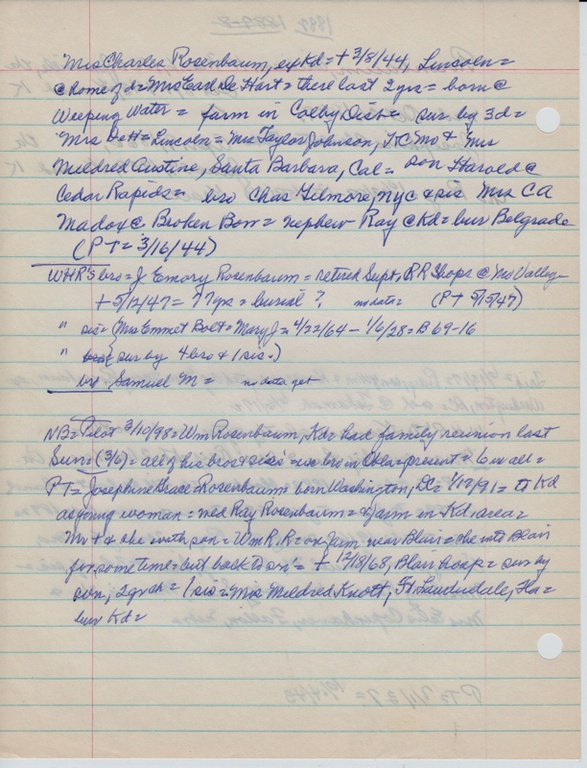 Mrs Charles Rosenbaum, exKd = + 3/8/44, Lincoln =
@ home of d = Mrs Earl De Hart = there last 2yrs = born @
Weeping Water = farm in Colby Dist = sur by 3d =
Mrs DeH = Lincoln = Mrs Taylor Johnson, KC Mo & Mrs
Mildred Austine, Santa Barbara, Cal = son Harold @
Cedar Rapids = bro Chas Gilmore, NYC & sis Mrs CA
Madox @ Broken Bow = nephew Ray @ Kd = bur Belgrade
(PT = 3/16/44)
WHR's bro = J Emory Rosenbaum = retired Supt, RR Shops @ Mo Valley =
+ 5/12/47 = 77yrs = burial ? no data = (PT 5/15/47)
" sis = (Mrs Emmet Bolt = Mary J = 4/22/64 - 1/6/28 = B 69-16
" sur by 4 bro & 1 sis.)
bro Samuel M = no data yet
NB = Pilot 3/10/98 = Wm Rosenbaum, Kd = had family reunion last
Sun = (3/6) = all of his bros & sis = in Okla = present = 6 in all =
PT = Josephine Grace Rosenbaum = born Washington, DC = 1/19/91 = to Kd
as young woman = med Ray Rosenbaum = & farm in Kd, area =
Mr + & she with son = Wm R. R = on farm near Blair = she into Blair
for some time = but back to son = + 12/18/68, Blair hosp = sur by
son; 2 grch = 1 sis = Mrs Mildred Knott, Ft Lauderdale, Fla =
bur Kd =